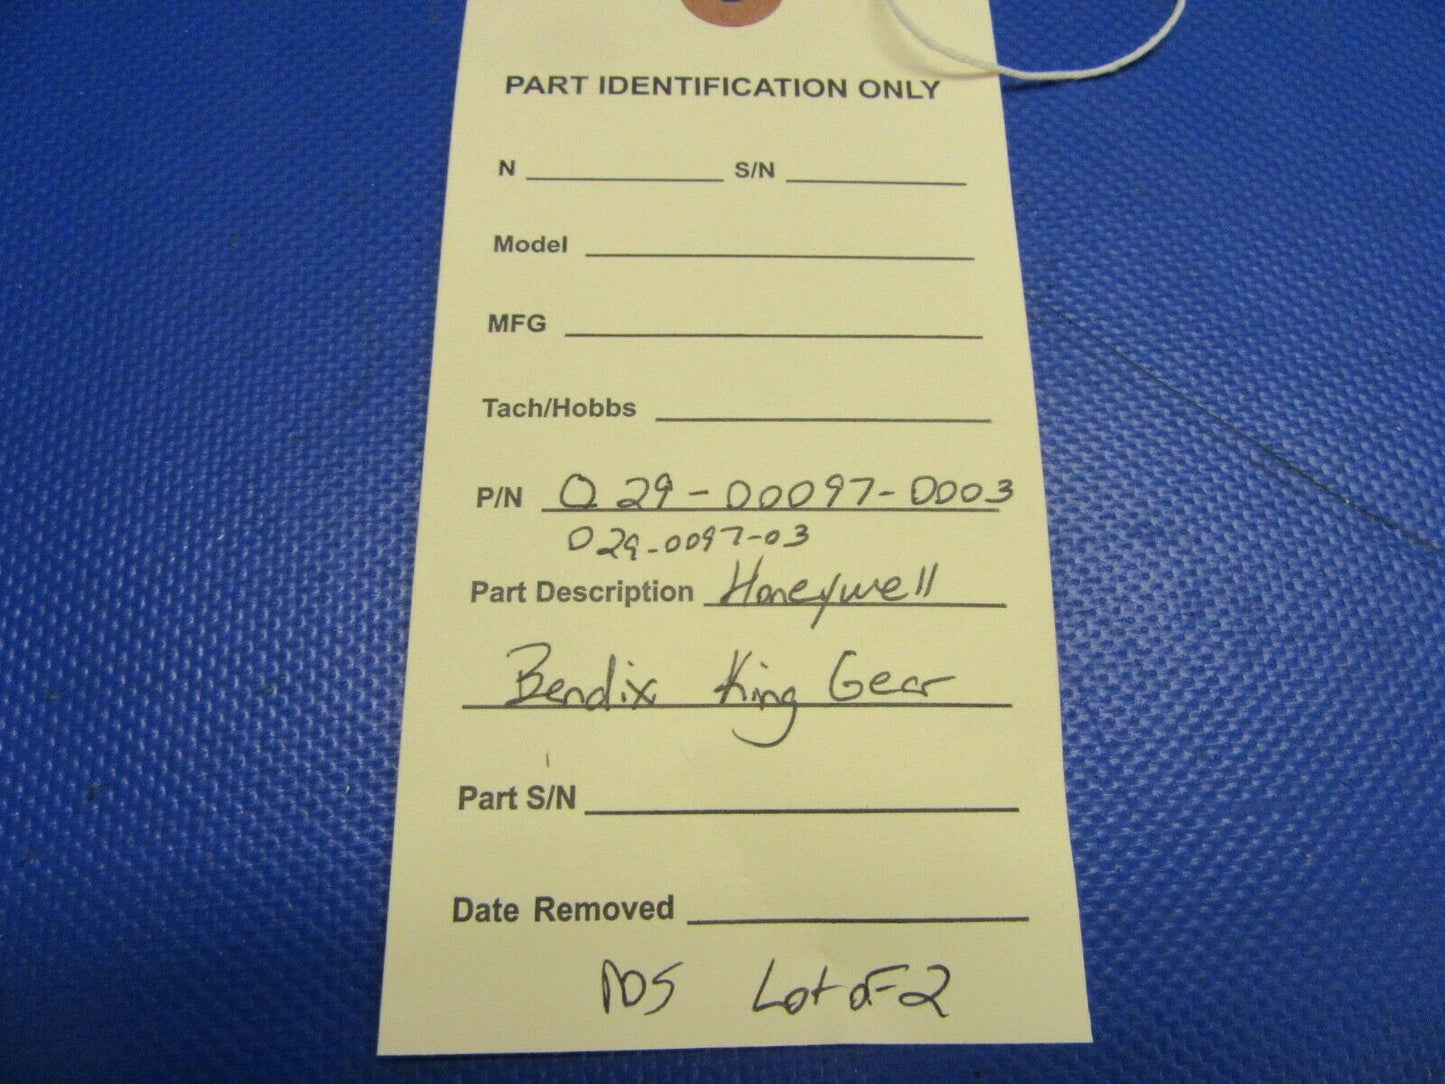 PART IDENTIFICATION ONLY
N S/N
Model
MFG
Tach/Hobbs
P/N 029-00097-0003
029-0097-03
Part Description Honeywell
Bendix King Gear
Part S/N
Date Removed
NOS Lot of 2